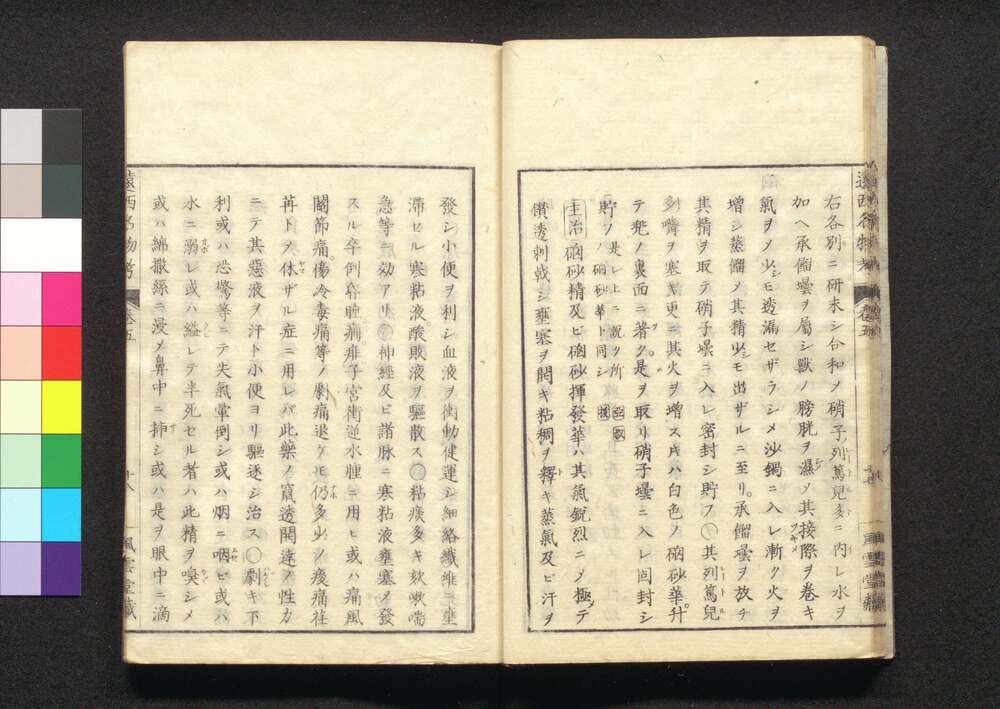 右各別ニ研末シ合和メ硝子列篤兒多ニ内レ水ヲ
加ヘ承餾壜ヲ屬シ獸ノ膀胱ヲ濕メ其接際ヲ卷キ
氣ヲメ少シモ透漏セザラシメ沙鍋ニ入レ漸ク火ヲ
増シ蒸餾メ其精少シモ出ザルニ至リ承餾壜ヲ放チ
其精ヲ取テ硝子壜ニ入レ密封シ貯フ○其列篤兒
多嘴ヲ塞キ更ニ其火ヲ増ス片ハ白色ノ硇砂華升
テ兠ノ裏面ニ著ク是ヲ取リ硝子壜ニ入レ固封シ
貯フ是レ上ニ説ク所ノ硇砂華ト同シ
主治 硇砂精及ビ硇砂揮發華ハ其氣鋭烈ニメ極テ
鑽透刺戟シ壅塞ヲ開キ粘稠ヲ釋キ蒸氣及ビ汗ヲ
遠西名物考 卷五 風雲堂藏
發シ小便ヲ利シ血液ヲ衝動健運シ細絡纖維ニ壅
滞セル寒粘液酸敗液ヲ驅散ス○粘痰多キ欬嗽喘
急等ニ効アリ○神經及ビ諸脉ニ寒粘液壅塞メ發
スル卒倒昏睡癇痱子宮衝逆水腫ニ用ヒ或ハ痛風
關節痛傷冷毒痛等ノ劇痛退クモ仍多少ノ痠痛荏
苒トヲ休ザル症ニ用レバ此藥ノ竄透開達ノ性方
ニテ其惡液ヲ汗ト小便ヨリ驅逐シ治ス○劇キ下
利或ハ恐驚等ニテ失氣暈倒シ或ハ烟ニ咽ビ或ハ
水ニ溺レ或ハ縊レテ半死セル者ハ此精ヲ嗅シメ
或ハ綿撒絲ニ浸メ鼻中ニ挿シ或ハ是ヲ眼中ニ滴
遠西名物考 卷五 十八 風雲堂藏